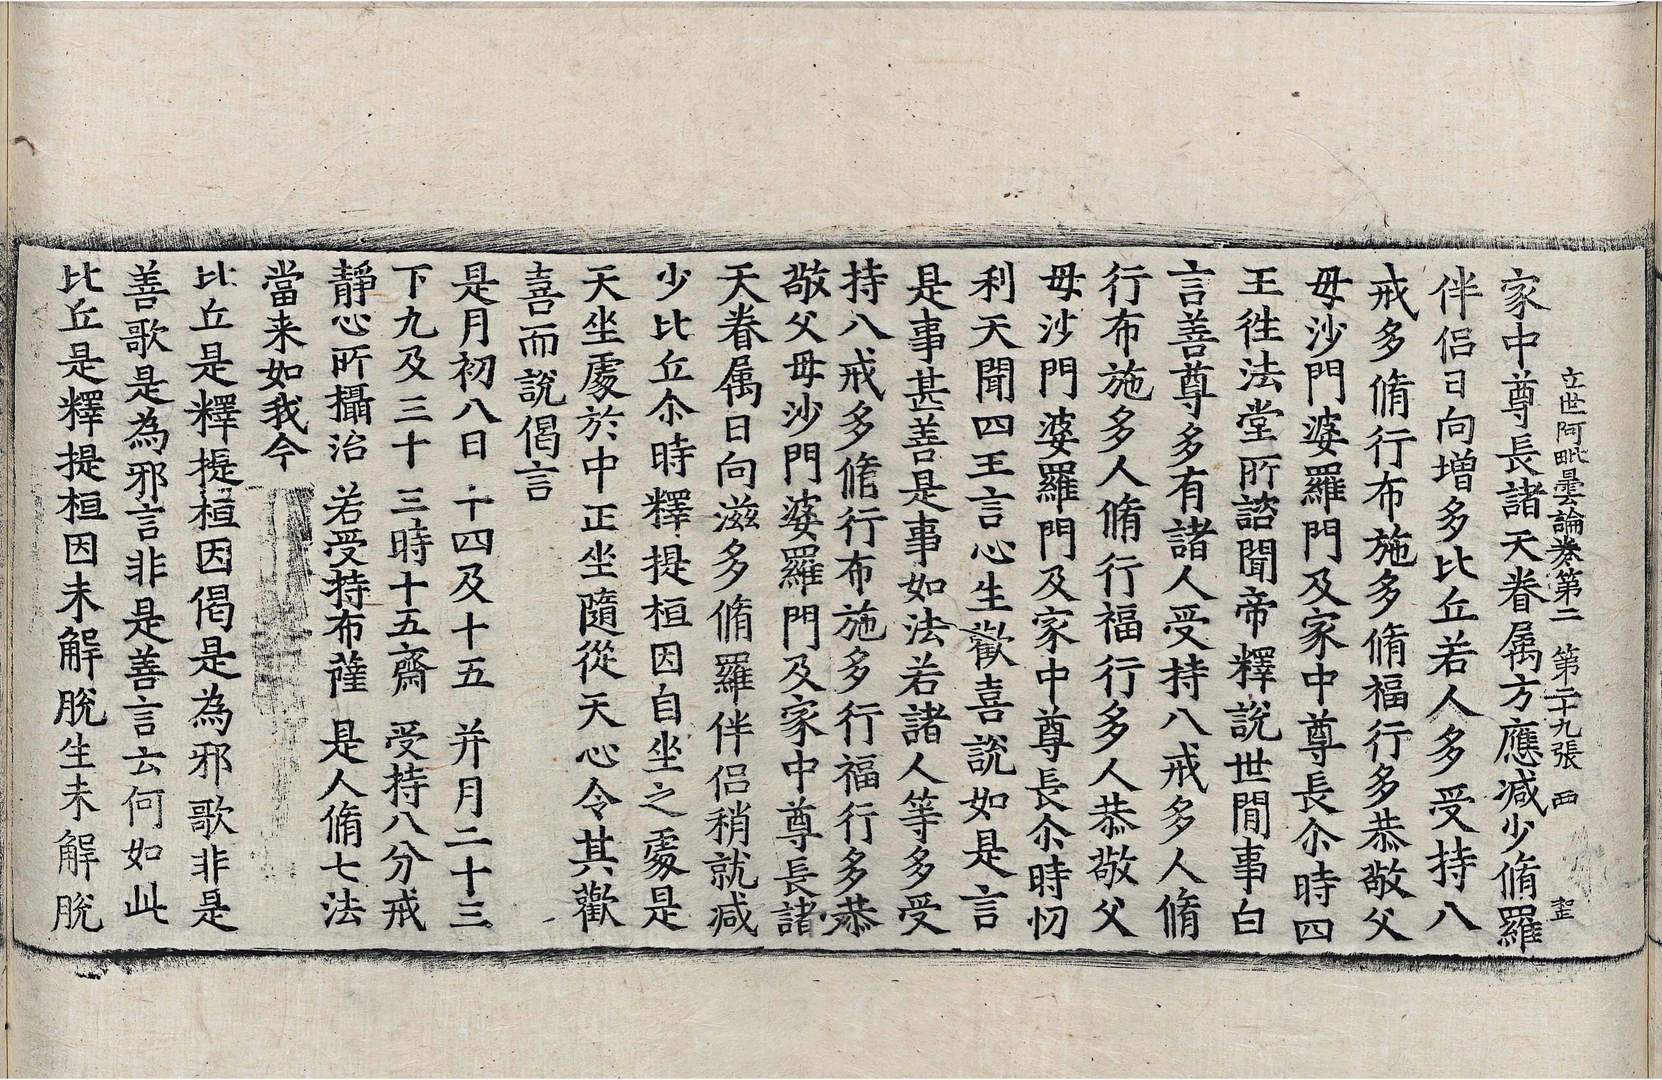 立世阿毗曇論卷第二　第二十九張　西
家中尊長諸天眷属方應減少脩羅
伴侶日向增多比丘若人多受持八
戒多脩行布施多脩福行多恭敬父
母沙門婆羅門及家中尊長尒時四
王徃法堂所諮聞帝釋說世間事白
言善尊多有諸人受持八戒多人脩
行布施多人脩行福行多人恭敬父
母沙門婆羅門及家中尊長尒時忉
利天聞四王言心生歡喜說如是言
是事甚善是事如法若諸人等多受
持八戒多脩行布施多行福行多恭
敬父母沙門婆羅門及家中尊長諸
天眷属日向滋多脩羅伴侶稍就減
少比丘尒時釋提桓因自坐之處是
天坐處於中正坐隨從天心令其歡
喜而說偈言
是月初八日　十四及十五　并月二十三
下九及三十　三時十五齋　受持八分戒
靜心所攝治　若受持布薩　是人脩七法
當来如我今
比丘是釋提桓因偈是為邪歌非是
善歌是為邪言非是善言云何如此
比丘是釋提桓因未解脫生未解脫